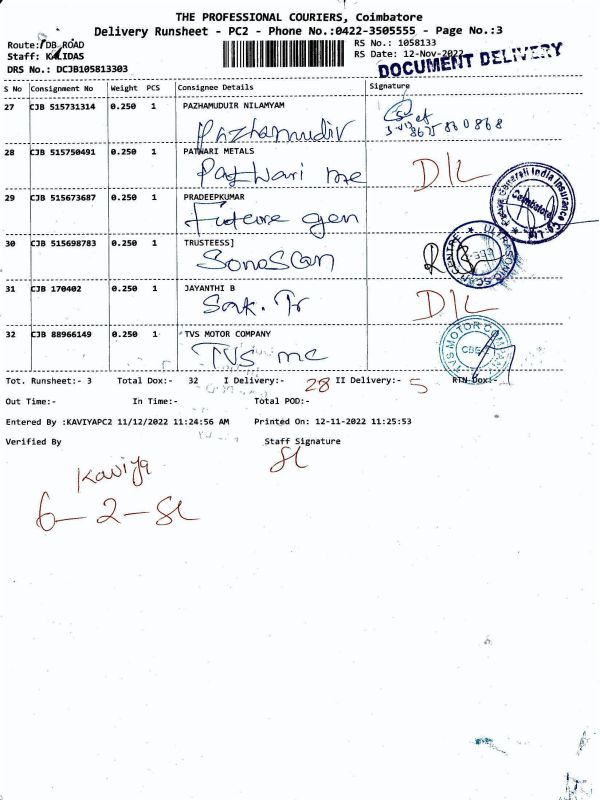 THE PROFESSIONAL COURIERS, Coimbatore
Delivery Runsheet - PC2 - Phone No.:0422-3505555 - Page No.:3
Route: DB ROAD RS No.: 1058133
Staff: KALIDAS RS Date: 12-Nov-2022
DRS No.: DCJB105813303 DOCUMENT DELIVERY
S No Consignment No Weight PCS Consignee Details Signature
27 CJB 515731314 0.250 1 PAZHAMUDUIR NILAMYAM
Pazhamudir
28 CJB 515750491 0.250 1 PATWARI METALS
Patwari me D/L
29 CJB 515673687 0.250 1 PRADEEPKUMAR
Future gen
Future Generali India Insurance Co. Ltd. Coimbatore
30 CJB 515698783 0.250 1 TRUSTEESS]
SonoScan
ULTRASONIC SCAN CENTRE
31 CJB 170402 0.250 1 JAYANTHI B
D/L
32 CJB 88966149 0.250 1 TVS MOTOR COMPANY
TVS mc
TVS MOTOR COMPANY
Tot. Runsheet:- 3 Total Dox:- 32 I Delivery:- 28 II Delivery:- 5 RTN Dox:-
Out Time:- In Time:- Total POD:-
Entered By :KAVIYAPC2 11/12/2022 11:24:56 AM Printed On: 12-11-2022 11:25:53
Verified By Staff Signature
Kaviya